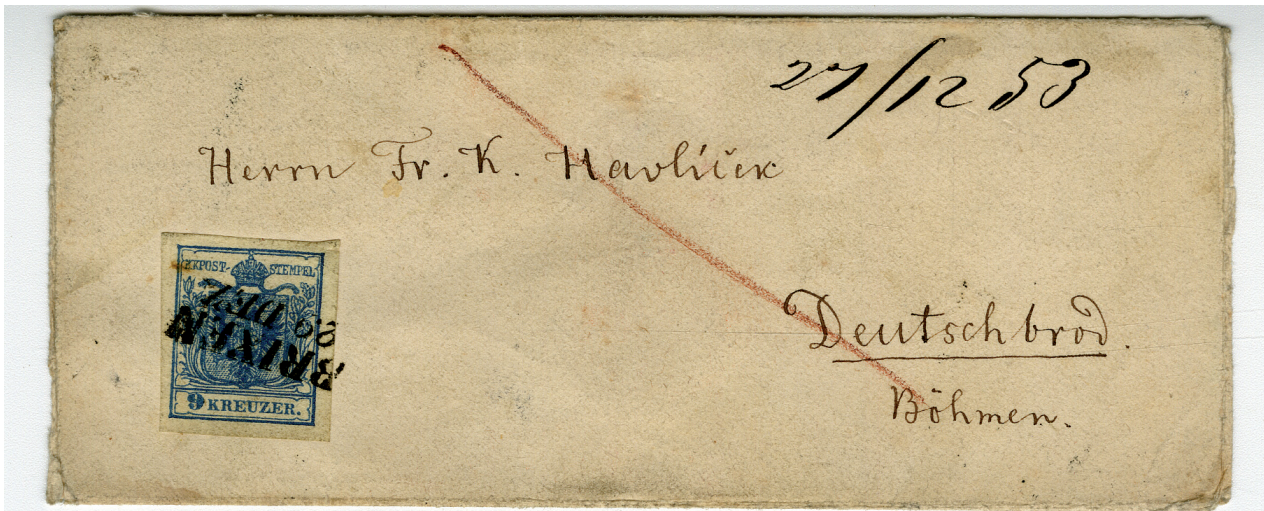 27/12 53
Herrn Fr. K. Havlíček
KKPOST-STEMPEL
BRIXEN
DEZ
9 KREUZER.
Deutschbrod.
Böhmen.